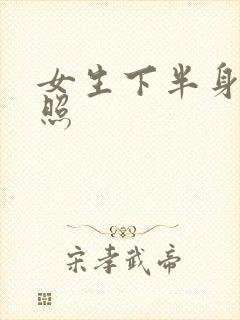 女生下半身
照
宋孝武帝